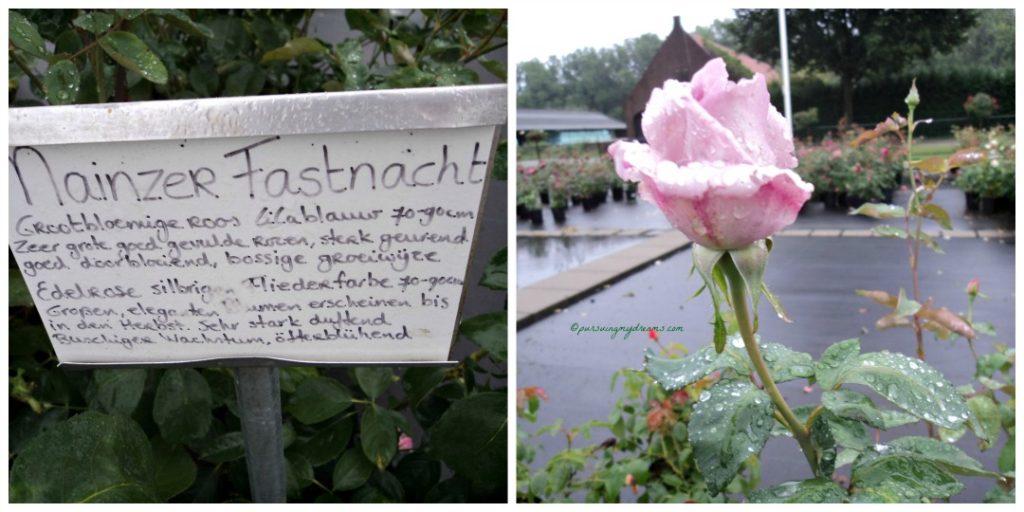 Mainzer Fastnacht
Grootbloemige roos Lilablauw 70-90cm
Zeer grote goed gevulde rozen, sterk geurend
goed doorbloeiend, bossige groeiwijze
Edelrose silbrig Fliederfarbe 70-90cm
Großen, erscheinen bis
in den Herbst. Sehr stark duftend
Buschiger Wachstum, öfterblühend
©pursuingmydreams.com